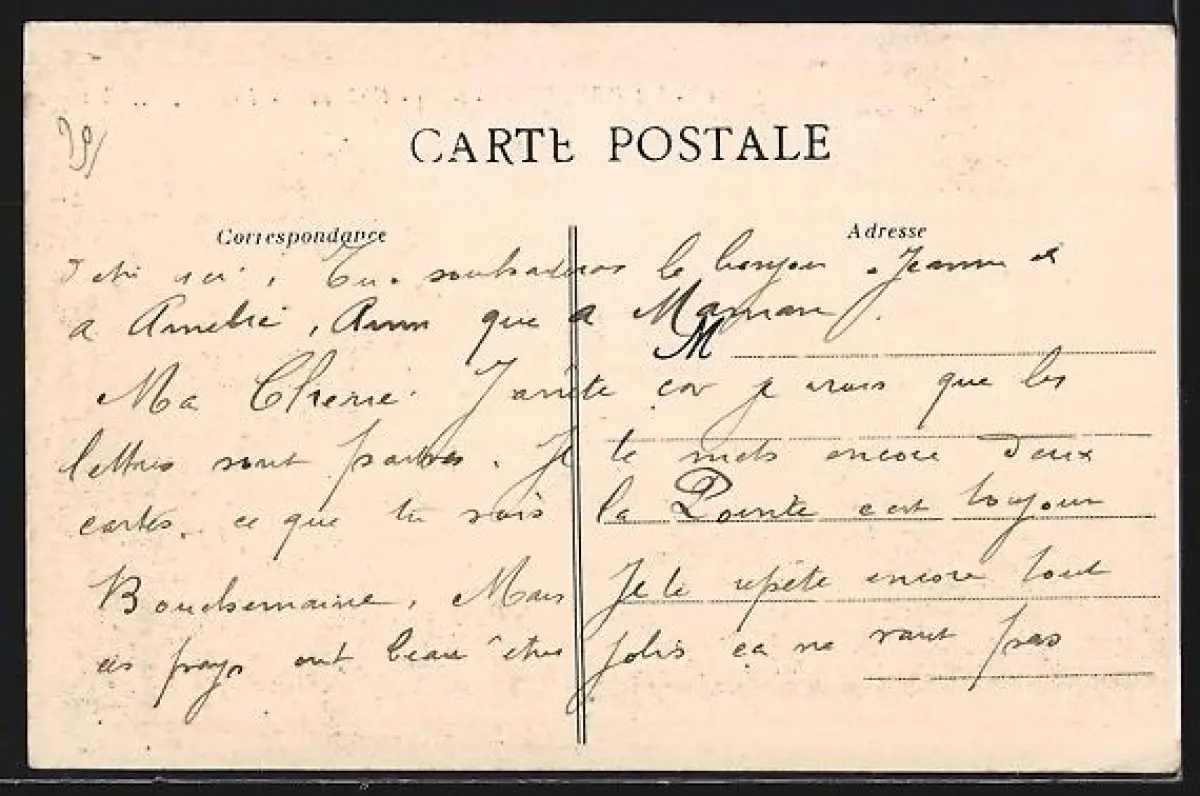 CARTE POSTALE
Correspondance
Adresse
ici, Tu souhaiteras le bonjour a Jeanne et
a Amelie, Ainsi que a Maman.
M
Ma Cherie. J'arrête car je crois que les
lettres sont parties. Je te mets encore deux
cartes. ce que tu vois la Pointe c'est toujour
Bouchemaine, Mais Je te repéte encore tout
ces pays ont beau être jolis ca ne vaut pas